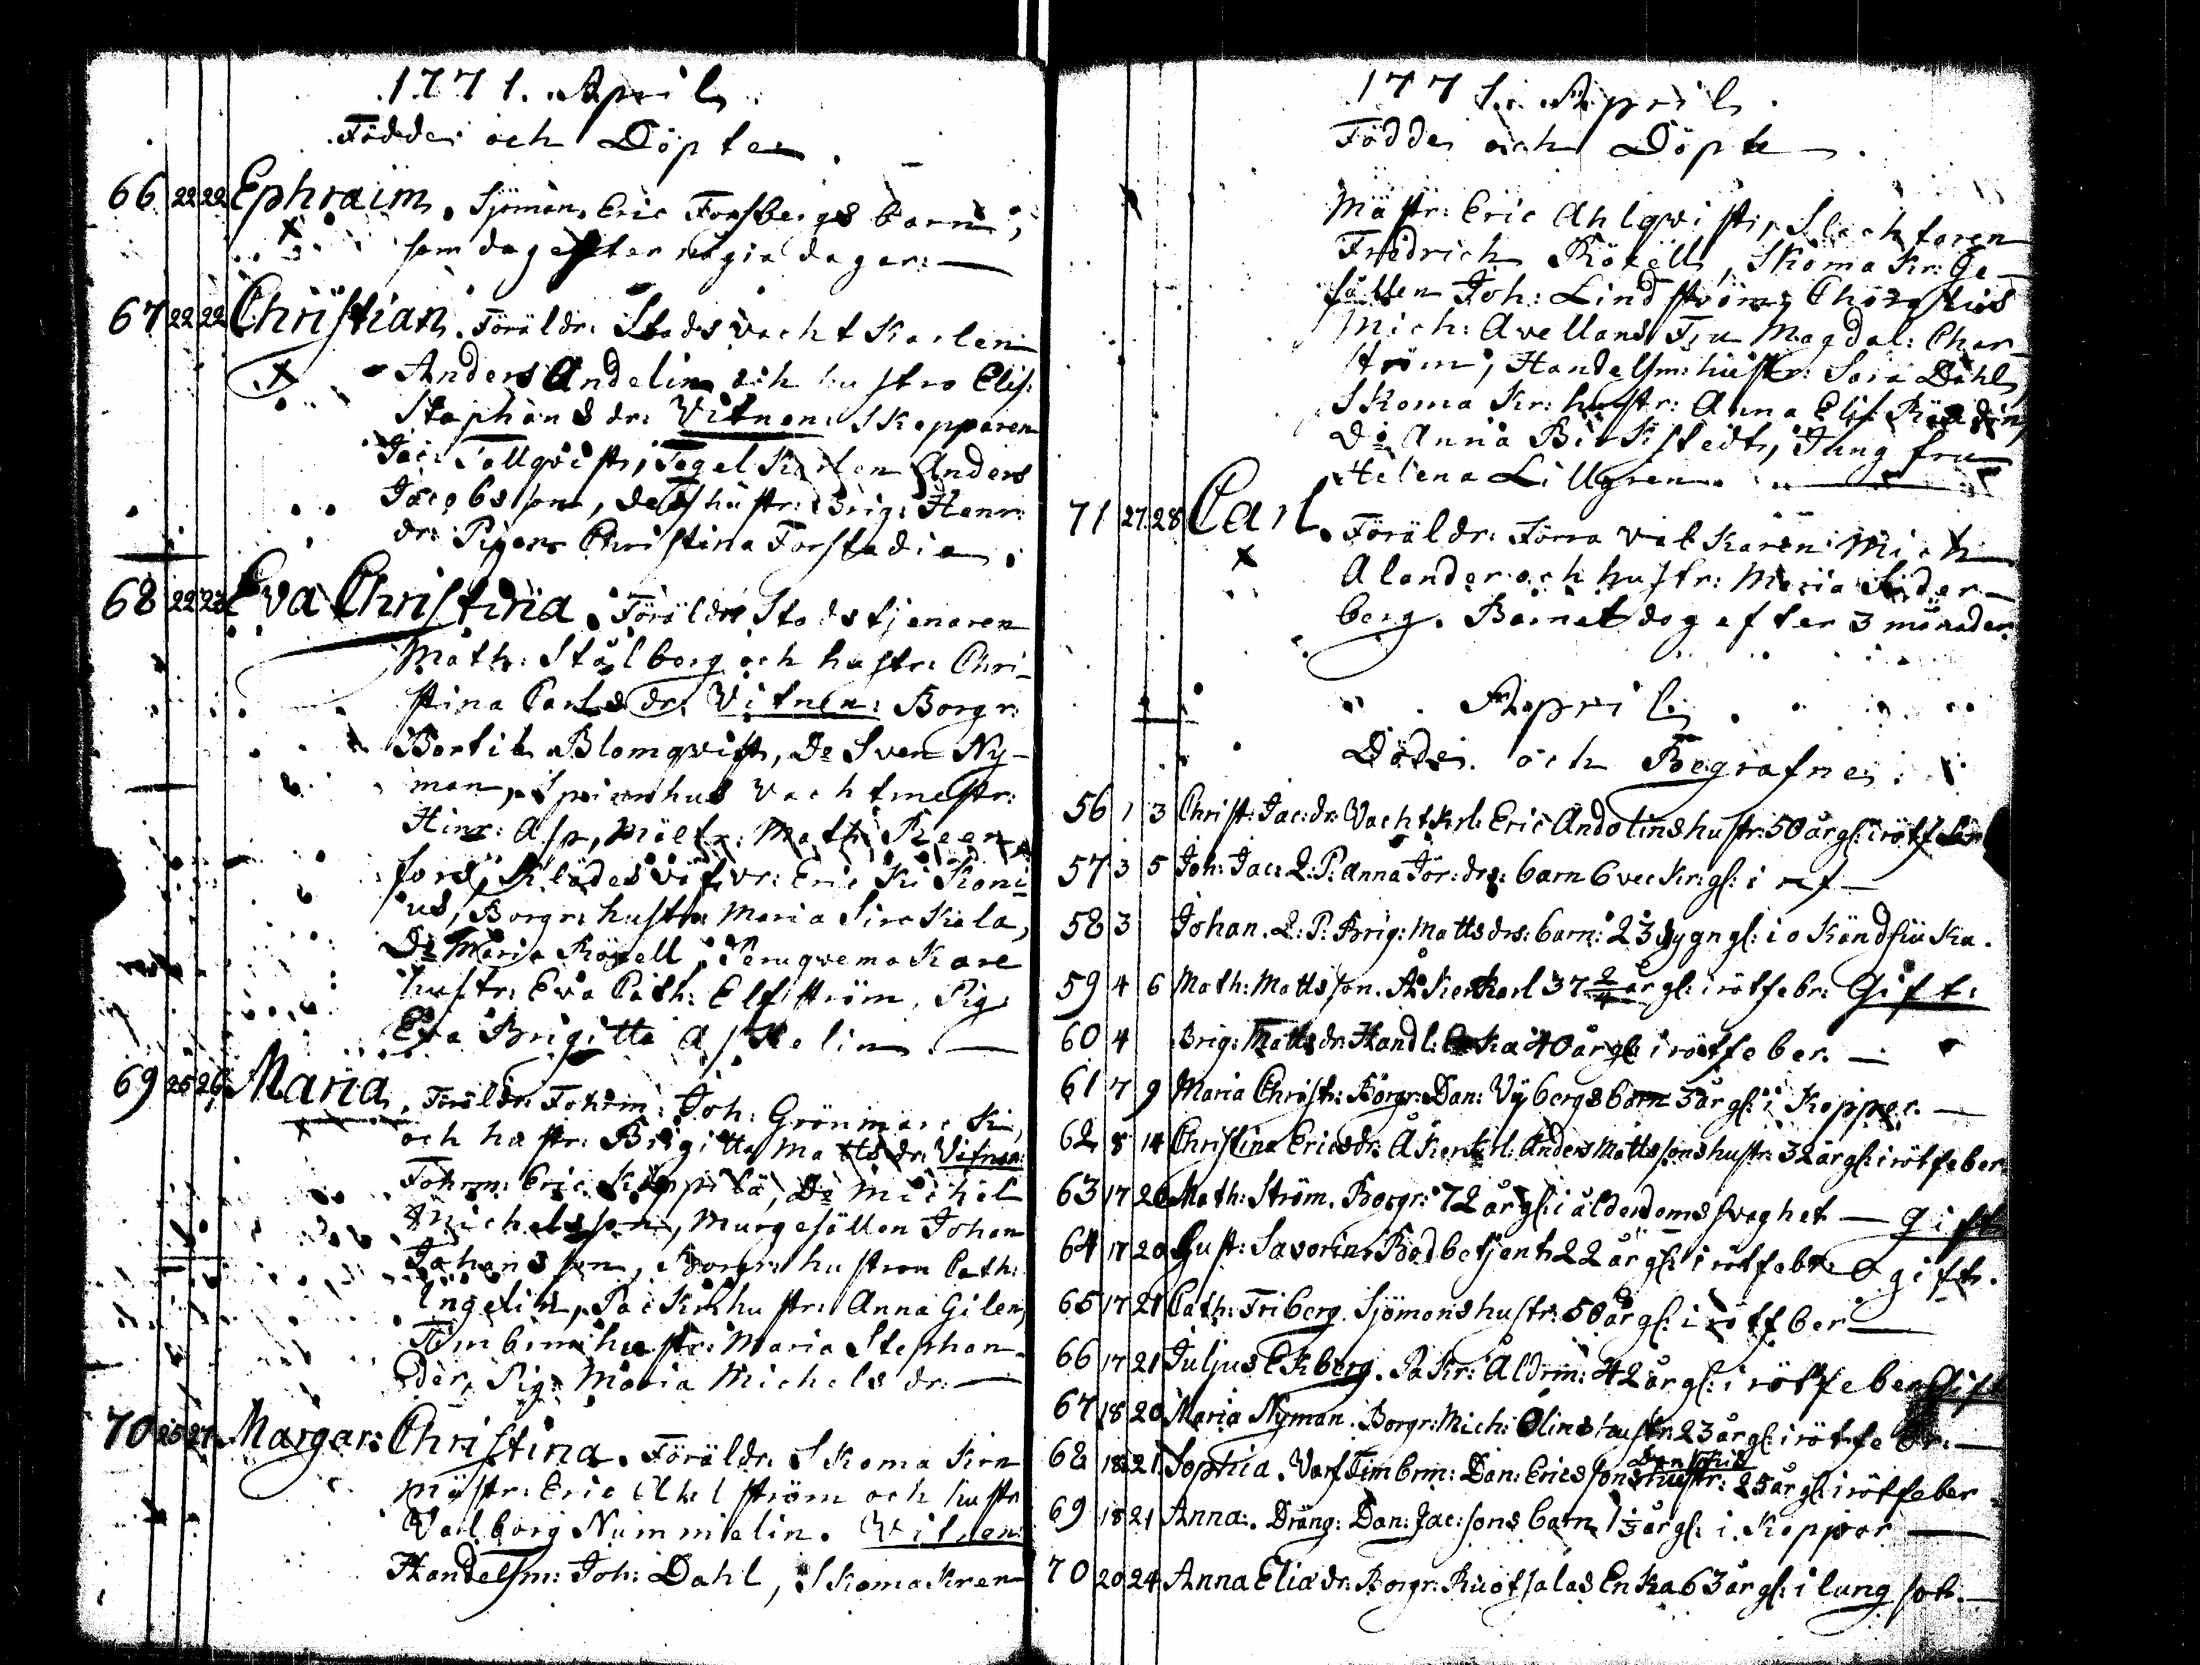 1771. April
Födde och Döpte
66 22 22 Ephraim. Sjöman. Eric Forsbergs barn,
som dog efter några dagar.
67 22 22 Christian. Föräldr: Stads vacht Karlen
Anders Andelin och hustro Elis:
Staphans dr: Vitnen: Skepparen
Jac: Tallqvist, Tegel Karlen Anders
Jacobsson, dess hustr: Brig: Henr:
dr: Pigan Christina Forstadia.
68 22 23 Eva Christina. Föräldr: Stadstjenaren
Math: Stålberg och hustr: Chri-
stina Carls dr: Vitnen: Borgr:
Bertil Blomqvist, Do Sven Ny-
man, Spinnhus Vachtmestr:
Hinr: Asp, Mältr: Math:
fors, Klädesväfvr: Eric Ki Koni
us, Borgr: hustr: Maria SircKela,
Do Maria Röxell, PeruqvemaKare
hustr: Eva Cath: Elfström, Pig:
Eva Brigitta Askelin.
69 25 26 Maria. Föräldr: Fohrm: Joh: Grönmarck,
och hustr: Brigitta Matts dr: Vitnen:
Fohrm: Eric Kippilä, Do Michel
Michelsson, Murgesällen Johan
Johansson, Borgr: hustron Cath:
Ingelin, PacKk: hustr: Anna Gilen,
Timberm: hustr: Maria Stephans
der, Pig: Maria Michels dr:
70 25 27 Margar: Christina. Föräldr: SKomaKrn
Mästr: Eric Ahlström och hustr:
Valborg Nummelin. Vitnen:
Handelsm: Joh: Dahl, SKomaKren
1771. April
Födde och Döpte
Mästr: Eric Ahlqvist, Slachtaren
Fredrich Röxell, SKomaKr: Ge-
sällen Joh: Lindström,
Mich: Avellans Fru Magdal: Char-
ström, Handelsm: hustr: Sara Dahl,
SKomaKr: hustr: Anna Elis:
Do Anna BirKstedt, Jungfru
Helena Lillgren.
71 27 28 Carl. Föräldr: Förra vatKaren Mich
Alander och hustr: Maria Söder-
berg. Barnet dog efter 3 månader.
April
Döde och Begrafne
56 1 3 Christ: Jac: dr: Vachtkrl: Eric Andelins hustr: 50 år gl: i rötfeber
57 3 5 Joh: Jac: L: P: Anna Jör: drs: barn 6 vecKr: gl: i
58 3 Johan. L: P: Brig: Matts drs: barn: 23 dygn gl: i oKänd siuKa.
59 4 6 Math: Mattsson. ÅKerKarl 37 2/4 år gl: i rötfebr: Gift:
60 4 Brig: Matts dr: Handl: EnKa 40 år gl: i rötfeber.
61 7 9 Maria Christ: Borgr: Dan: Vybergs barn 3 år gl: i Koppor.
62 8 14 Christina Erics dr: ÅKerkrl: Anders Mattssons hustr: 32 år gl: i rötfeber.
63 17 20 Math: Ström. Borgr: 72 år gl: i ålderdoms svaghet — gift
64 17 20 Gust: Savorin. Bodbetjent 22 år gl: i rötfebr. Ogift.
65 17 21 Cath: Friberg. Sjömans hustr: 50 år gl: i rötfber
66 17 21 Juljus Ekberg. BaKr: Åldrm: 42 år gl: i rötfeber. Gift
67 18 20 Maria Nyman. Borgr: Mich: Olins hustr: 23 år gl: i rötfebr.
68 18 21 Sophia. Varf Timbrm: Dan: Ericssons hustr: 25 år gl: i rötfeber
69 18 21 Anna. Dräng: Dan: Jac:sons barn 1 1/3 år gl: i Koppor
70 20 24 Anna Elias dr: Borgr: Ruotsalas EnKa 63 år gl: i lungsot.